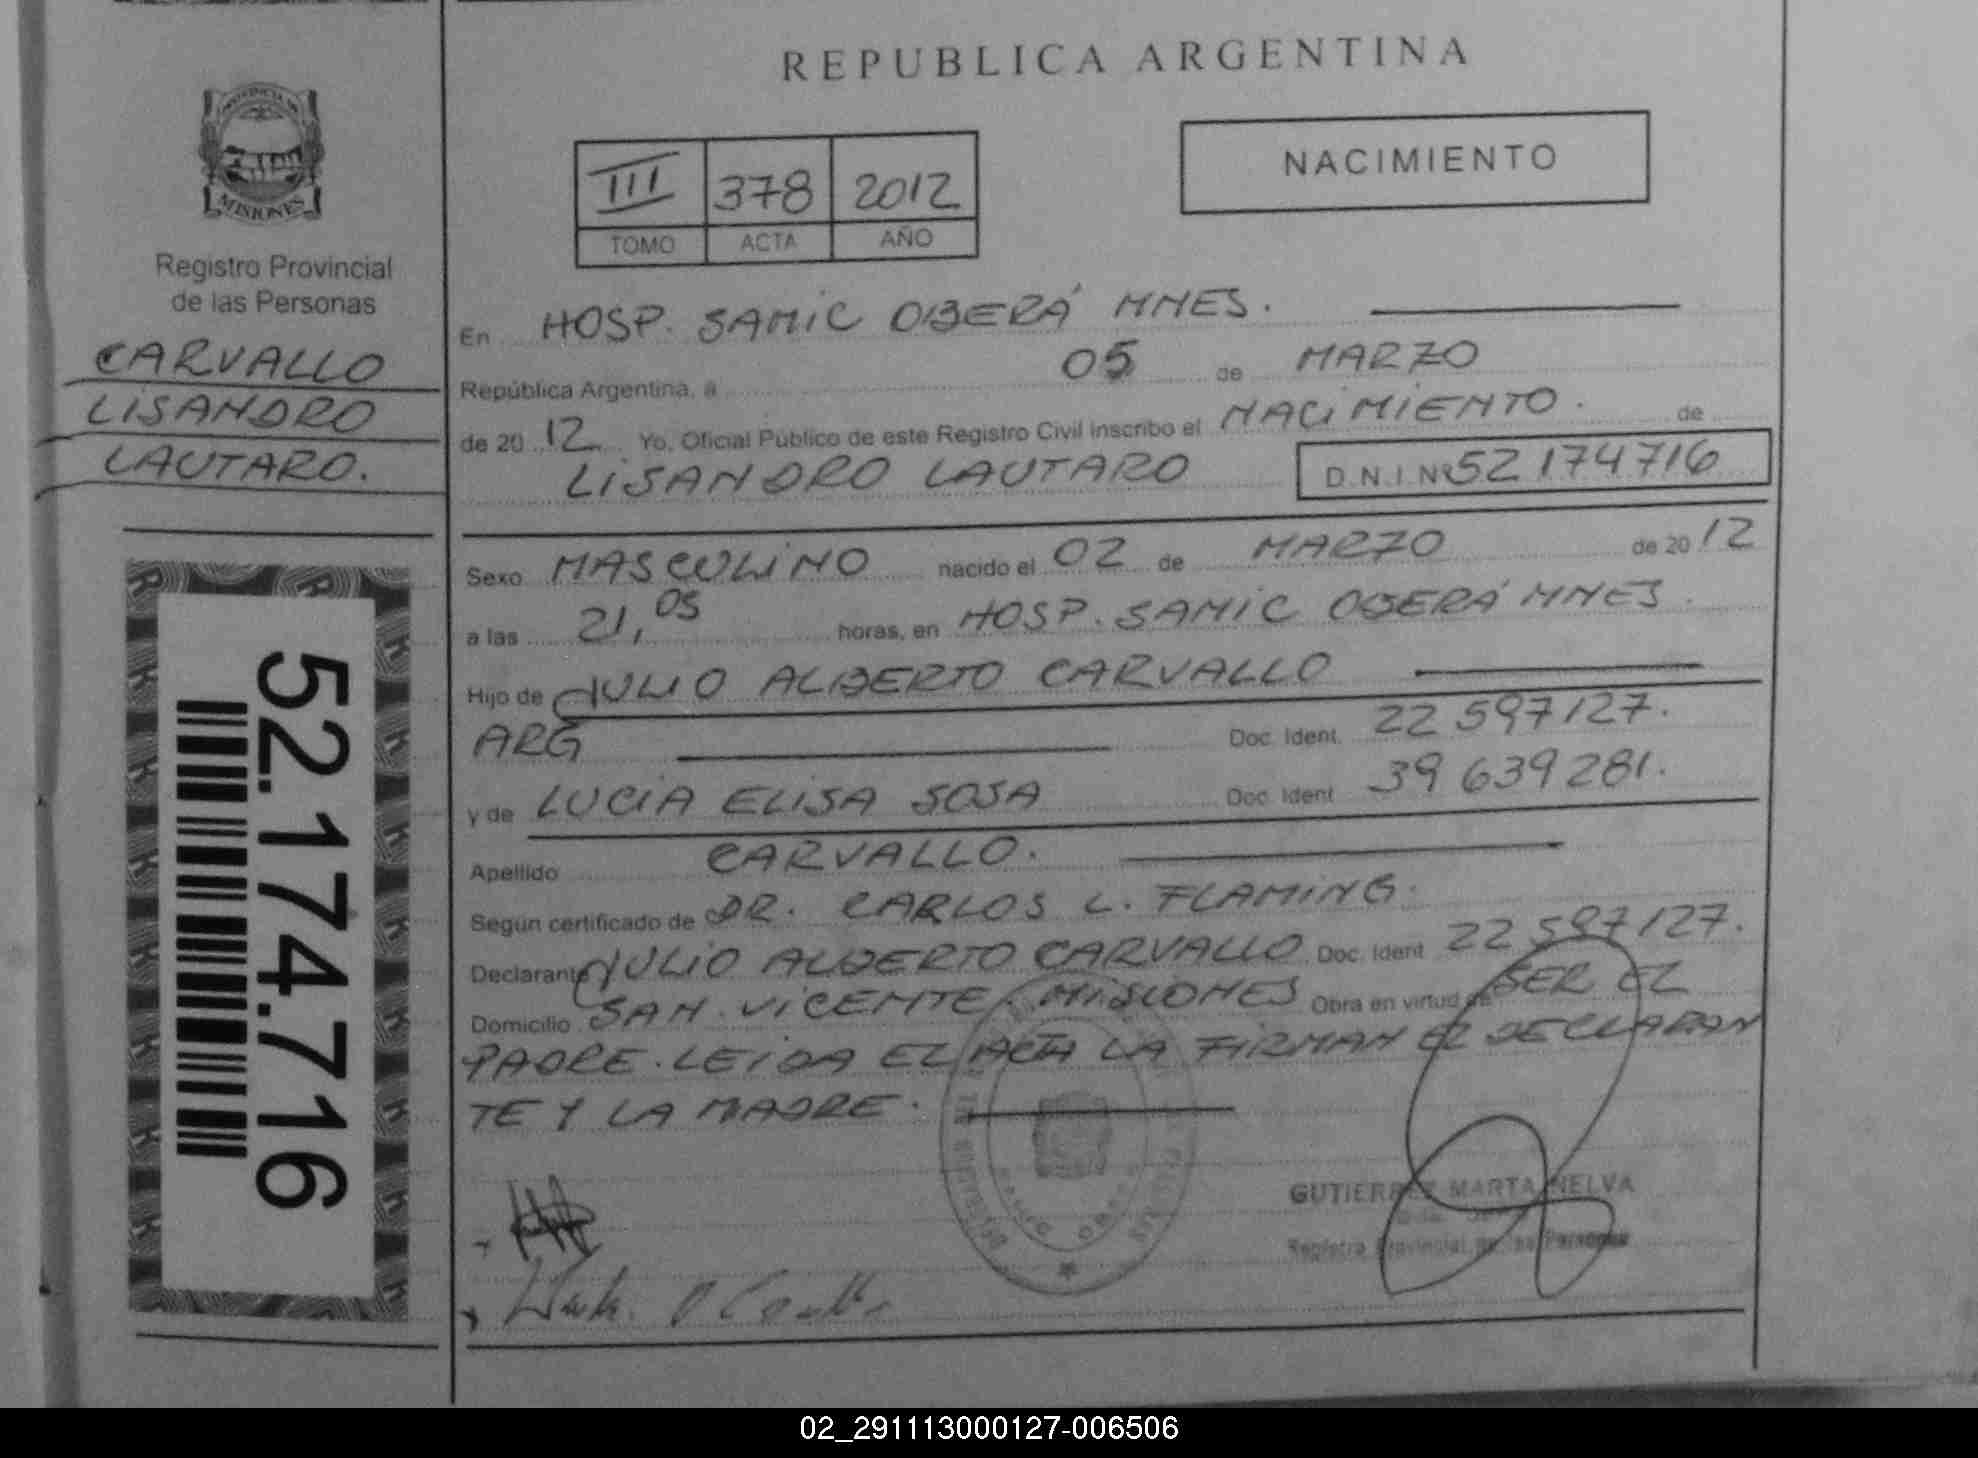 REPUBLICA ARGENTINA
PROVINCIA DE
MISIONES
Registro Provincial
de las Personas
CARVALLO
LISANDRO
LAUTARO.
52.174.716
III 378 2012
TOMO ACTA AÑO
NACIMIENTO
En HOSP. SAMIC OBERÁ MNES.
República Argentina, a 05 de MARZO
de 20 12 Yo, Oficial Público de este Registro Civil inscribo el NACIMIENTO. de
LISANDRO LAUTARO D.N.I.Nº 52 174 716
Sexo MASCULINO nacido el 02 de MARZO de 20 12
a las 21,05 horas, en HOSP. SAMIC OBERÁ MNES.
Hijo de JULIO ALBERTO CARVALLO
ARG Doc. Ident. 22 597 127.
y de LUCIA ELISA SOSA Doc. Ident 39 639 281.
Apellido CARVALLO.
Según certificado de DR. CARLOS L. FLAMING.
Declarante JULIO ALBERTO CARVALLO Doc. Ident 22 597 127.
Domicilio SAN VICENTE. MISIONES Obra en virtud de SER EL
PADRE. LEIDA EL ACTA LA FIRMAN EL DECLARAN
TE Y LA MADRE.
GUTIERREZ MARTA NELVA
Registro Provincial de las Personas
02_291113000127-006506